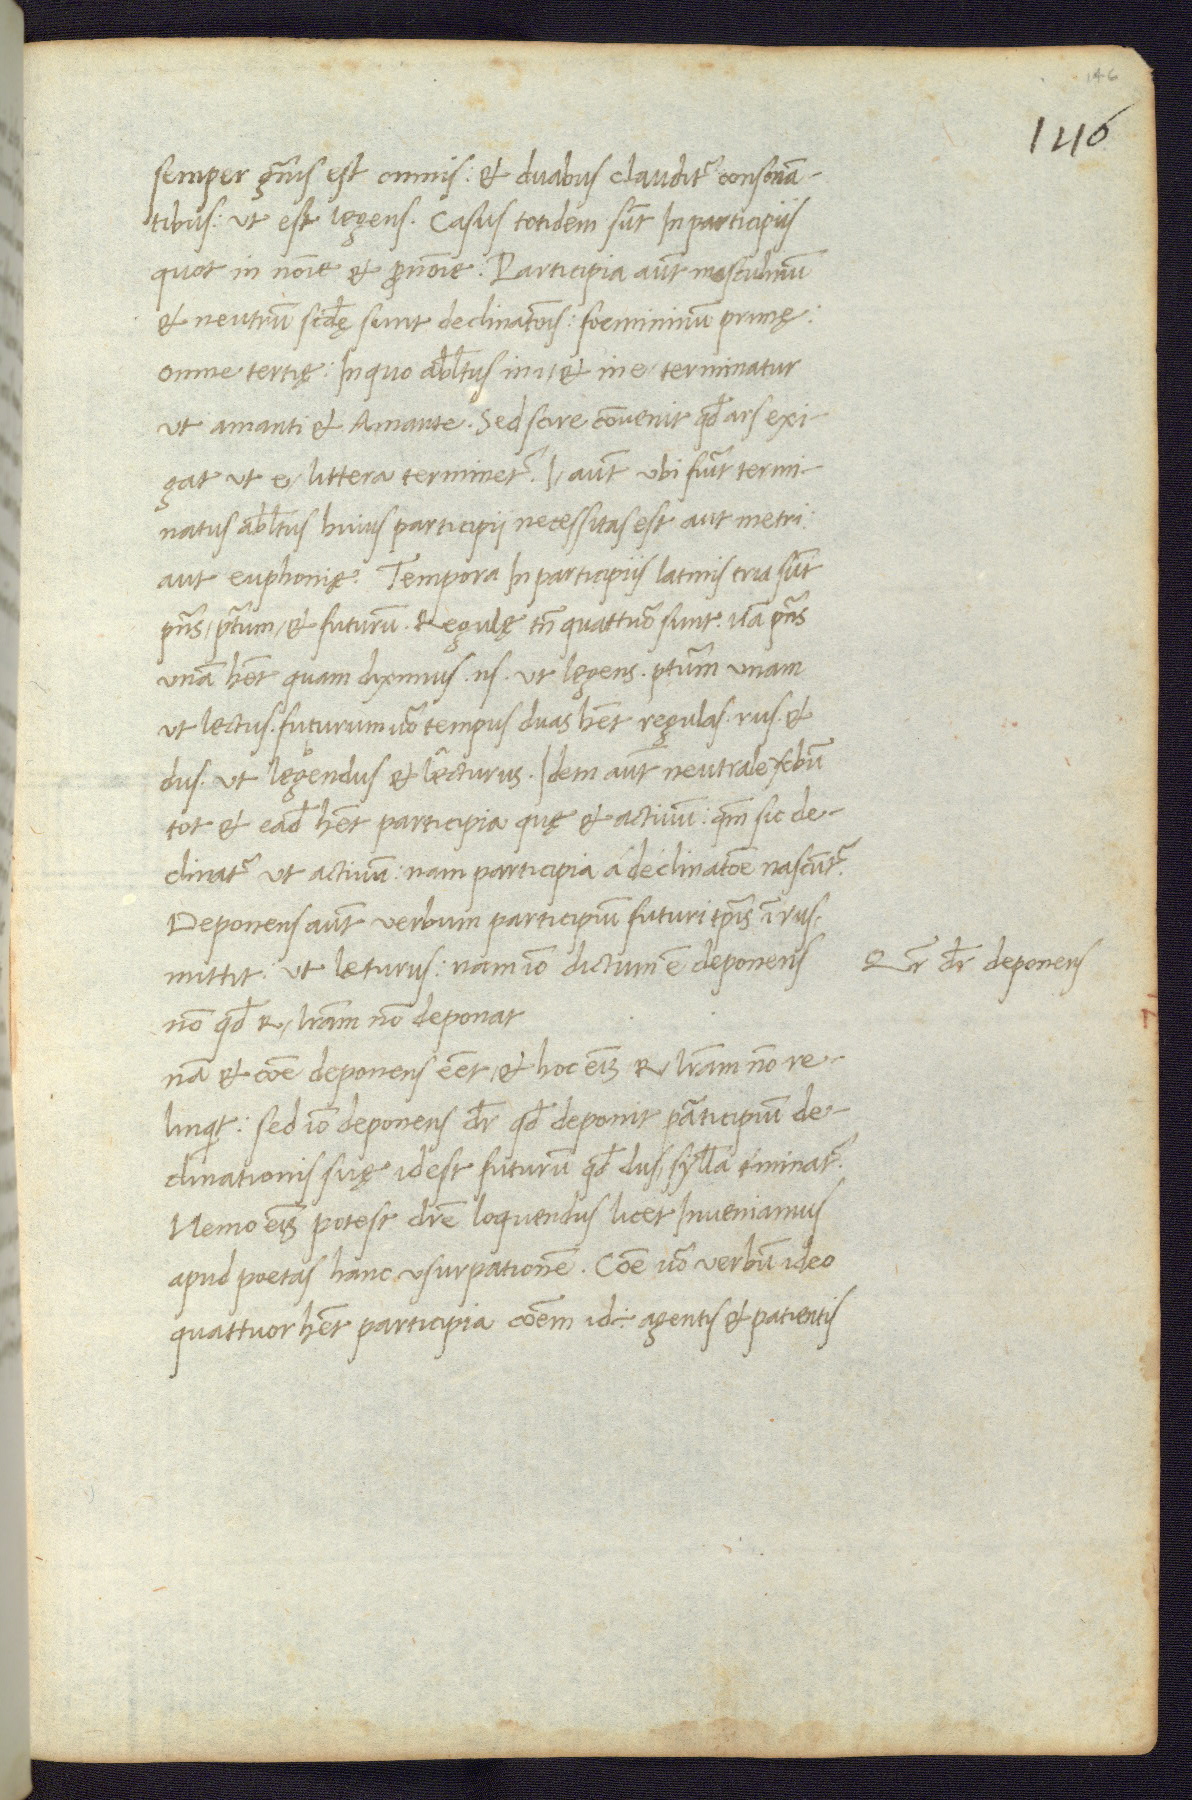 146
146
semper gn̄is est omnis: et duabus claudit᷑ consonā-
tibus: ut est legens. Casus totidem sūt In participiis
quot in nōīe et ꝓnōīe: Participia aūt masculinū
et neutrū scd̄ę sunt declinatōis: foemininū primę:
omne tertię: In quo abl̄tus in i/ et in e/ terminatur
ut amanti et Amante. Sed scire cōvenit qd̄ ars exi-
gat ut e/ littera terminet᷑. I/ aūt ubi fūīt termi-
natus abl̄tus huius participii necessitas est aut metri:
aut euphonię. Tempora In participiis latinis tria sūt
pn̄s/ pt̄um/ et futurū. Regulę tn̄ quattuor sunt. nā pn̄s
unā hēt quam diximus .ns. ut legens. pt̄um unam
ut lectus. futurum uō tempus duas hēt regulas. rus. et
dus. ut legendus et lecturus. Idem aūt neutrale ubū
tot et ead̄ hēt participia quę et activū: qm̄ sic de-
clinat᷑ ut activū: nam participia á declinatōe nascūt᷑.
Deponens aūt verbum participiū futuri tp̄is ī rus.
mittit: ut leturus: nam iō dictum ē deponens
nō qd̄ R/ lr̄am nō deponat
nā et cōe deponens eēt/ et hoc eīs R/ lr̄am nō re-
linqt: sed iō deponens dr̄ qd̄ deponit pāticipiū de-
clinationis suę id est futurū qd̄ dus/ syll̄a t̄minat᷑.
Nemo eīs potest dr̄e loquendus licet Inveniamus
apud poetas hanc usurpationē. Cōe uō verbū ideo
quattuor hēt participia cōem id÷ agentis et patientis
Qr̄ dr̄ deponens